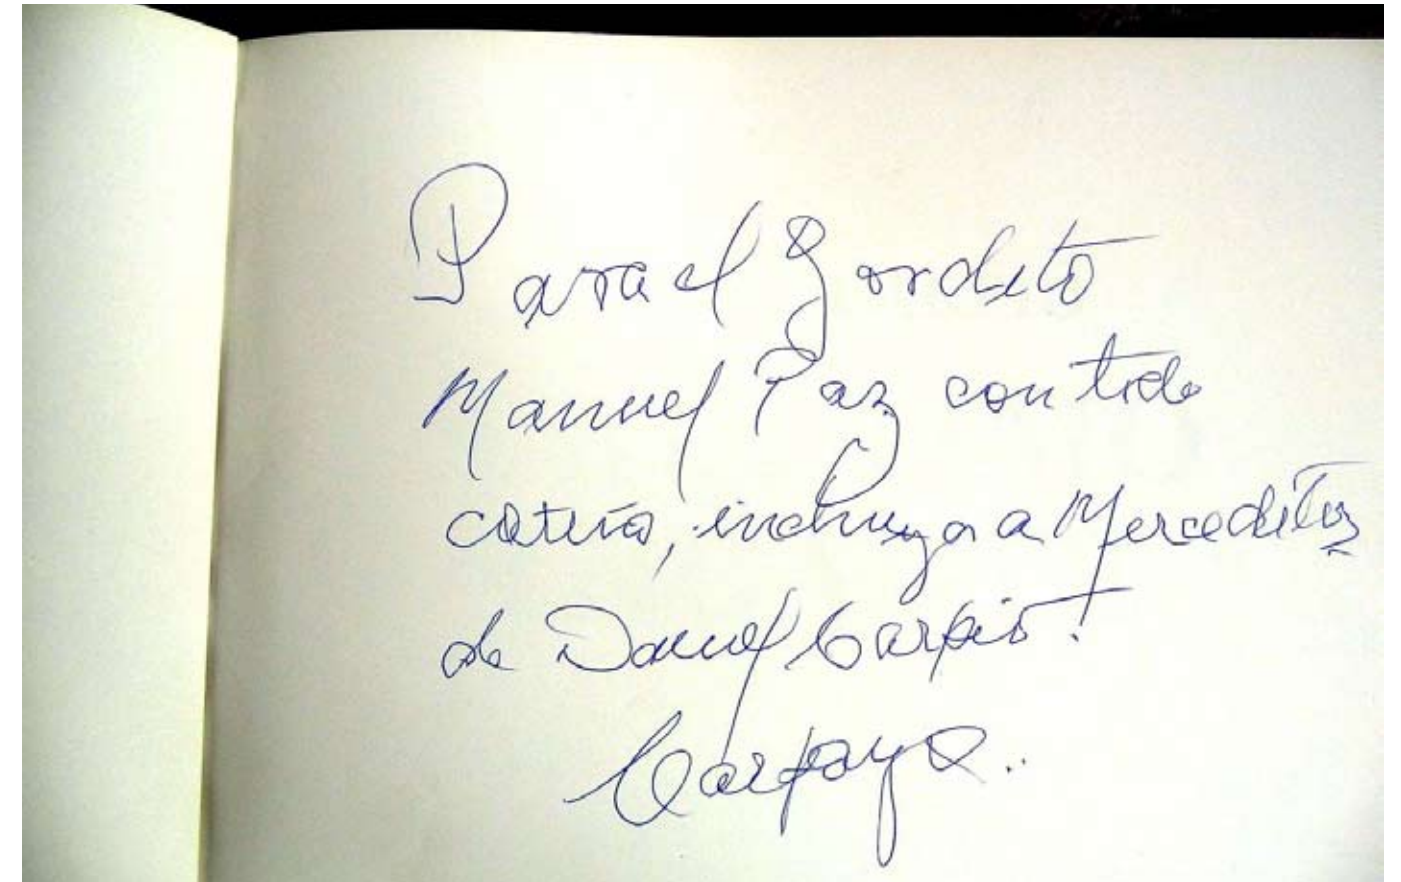 Para el gordito
Manuel Paz con todo
cariño, incluya a Merceditas
de Daniel Carpio!
Carpayo..